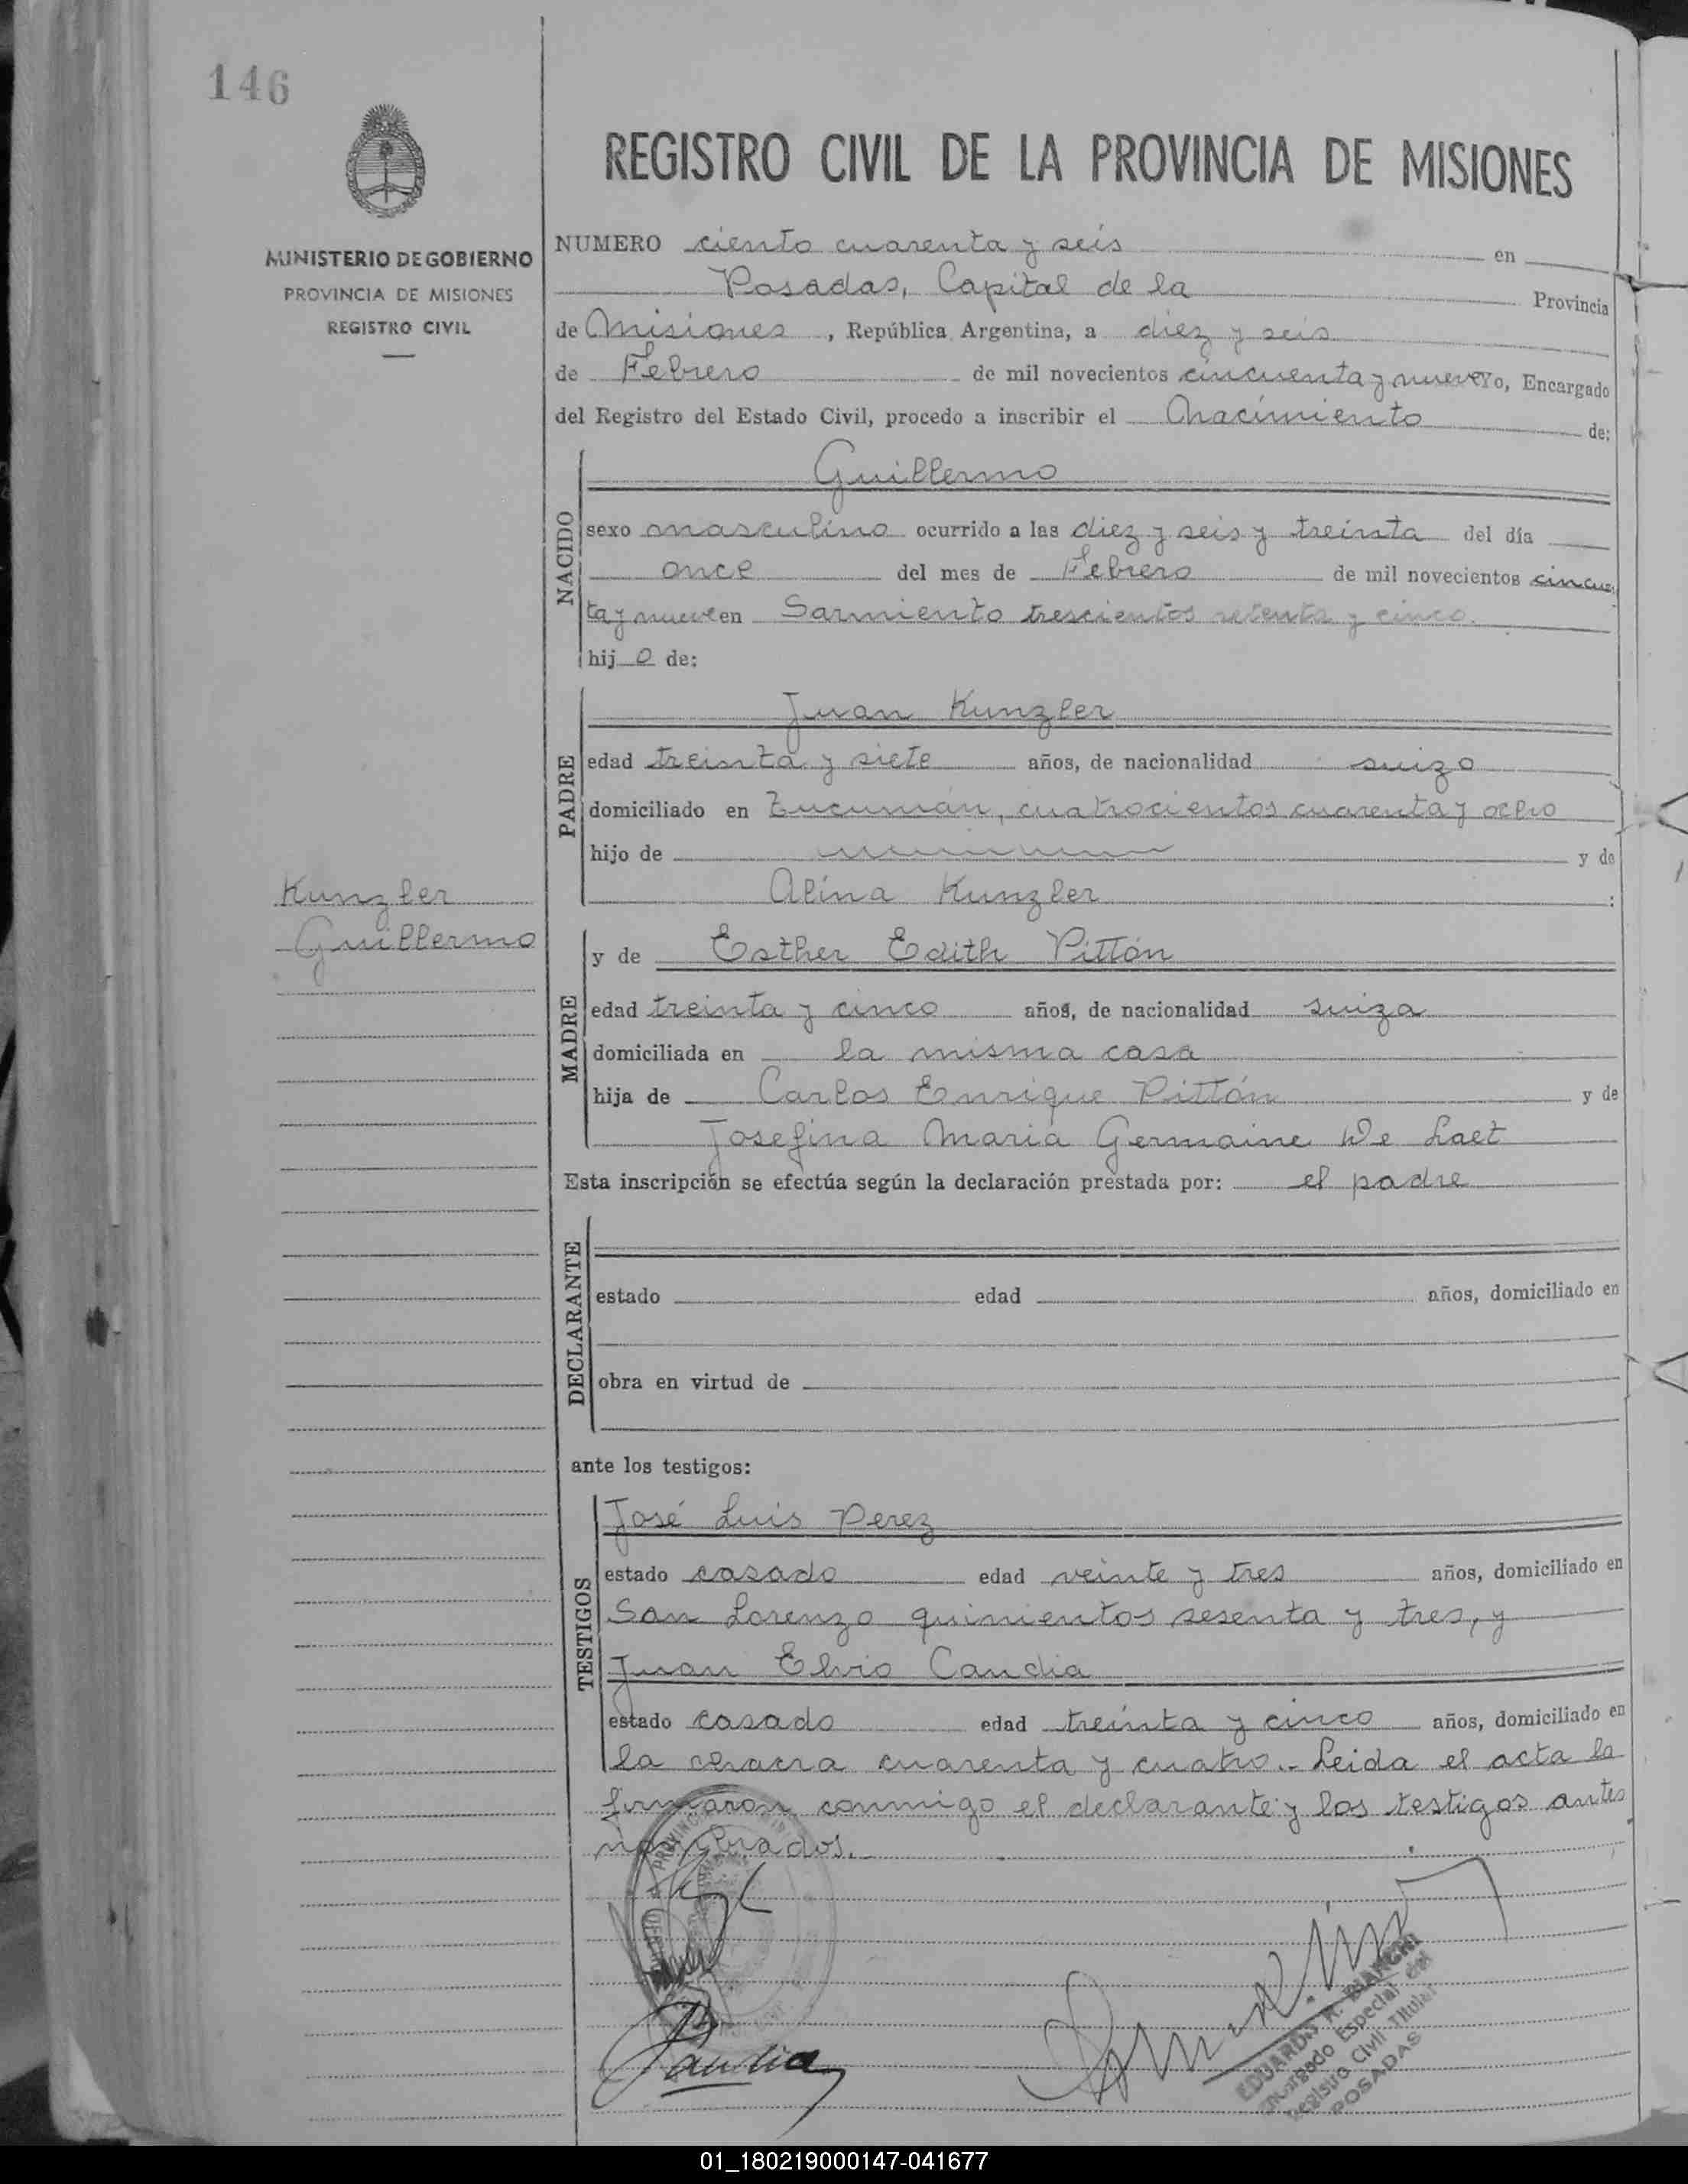 146
MINISTERIO DE GOBIERNO
PROVINCIA DE MISIONES
REGISTRO CIVIL
REGISTRO CIVIL DE LA PROVINCIA DE MISIONES
NUMERO ciento cuarenta y seis en
Posadas, Capital de la Provincia
de Misiones, República Argentina, a diez y seis
de Febrero de mil novecientos cincuenta y nueve Yo, Encargado
del Registro del Estado Civil, procedo a inscribir el Nacimiento de:
NACIDO
Guillermo
sexo masculino ocurrido a las diez y seis y treinta del día
once del mes de Febrero de mil novecientos cincuen
ta y nueve en Sarmiento trescientos setenta y cinco.
hij o de:
PADRE
Juan Kunzler
edad treinta y siete años, de nacionalidad suizo
domiciliado en Tucumán, cuatrocientos cuarenta y ocho
hijo de y de
Alina Kunzler :
Kunzler
Guillermo
MADRE
y de Esther Edith Pittón
edad treinta y cinco años, de nacionalidad suiza
domiciliada en la misma casa
hija de Carlos Enrique Pittón y de
Josefina María Germaine De Laet
Esta inscripción se efectúa según la declaración prestada por: el padre
DECLARANTE
estado edad años, domiciliado en
obra en virtud de
ante los testigos:
TESTIGOS
José Luis Perez
estado casado edad veinte y tres años, domiciliado en
San Lorenzo quinientos sesenta y tres, y
Juan Elvio Candia
estado casado edad treinta y cinco años, domiciliado en
la chacra cuarenta y cuatro.- Leida el acta la
firmaron conmigo el declarante y los testigos antes
nombrados.
PROVINCIA
Candia
EDUARDO R. BIANCHI
Encargado Especial del
Registro Civil Titular
POSADAS
01_180219000147-041677